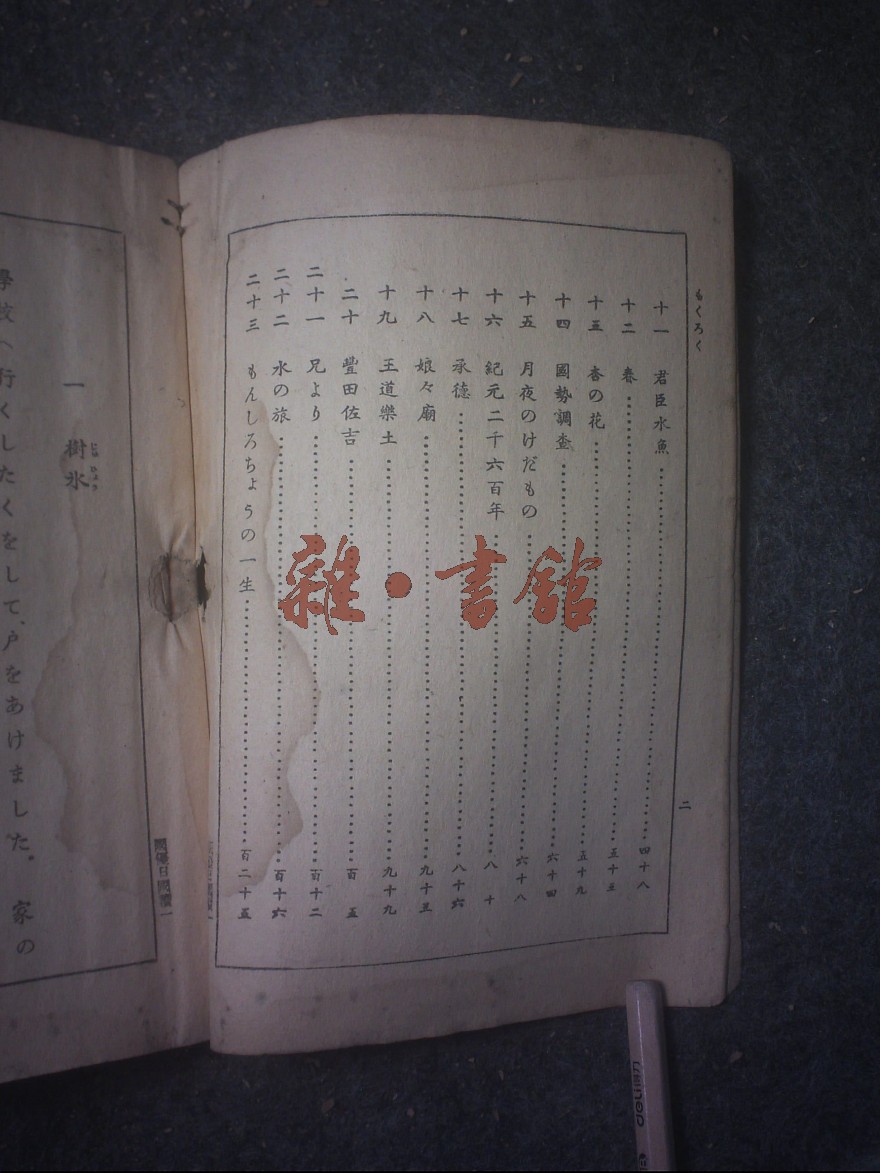 もくろく
二
十一 君臣水魚 四十八
十二 春 五十三
十三 杏の花 五十九
十四 國勢調査 六十四
十五 月夜のけだもの 六十八
十六 紀元二千六百年 八十
十七 承德 八十六
十八 娘々廟 九十三
十九 王道樂土 九十九
二十 豐田佐吉 百五
二十一 兄より 百十二
二十二 水の旅 百十六
二十三 もんしろちょうの一生 百二十五
一 樹氷
じゅ ひょう
學校へ行くしたくをして、戸をあけました。家の
雜·書館
deli 得力